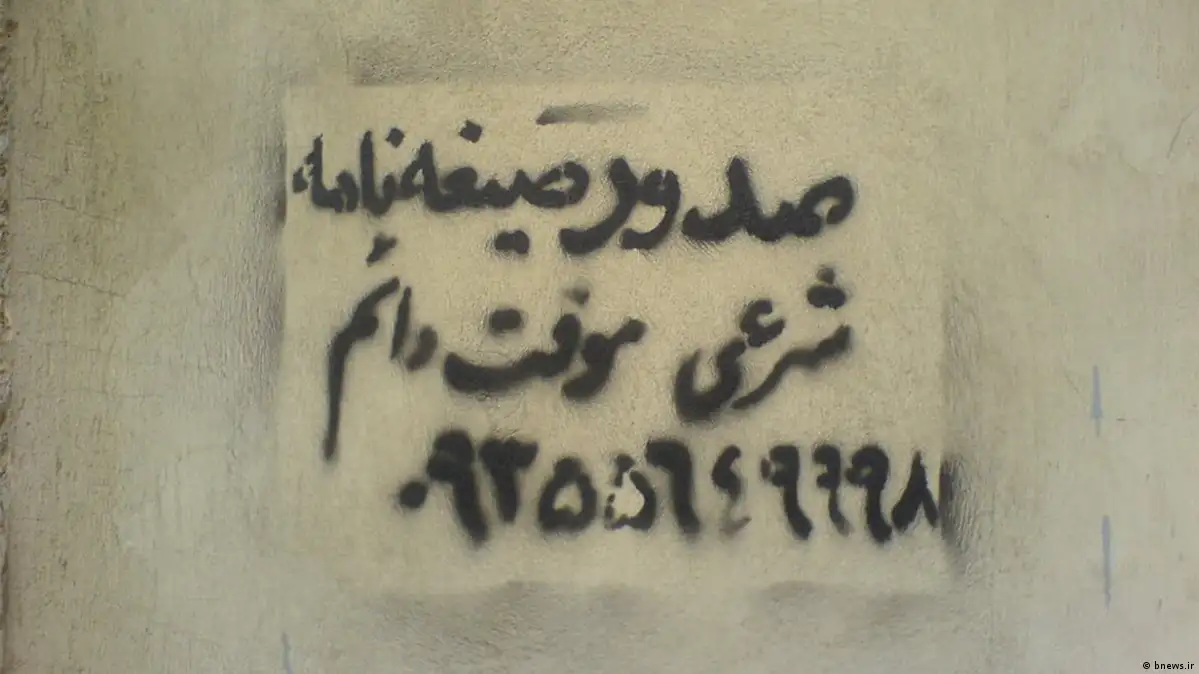 صدور صیغه‌نامه
شرعی موقت دائم
۰۹۳۵۵۶۴۹۶۹۸
© bnews.ir